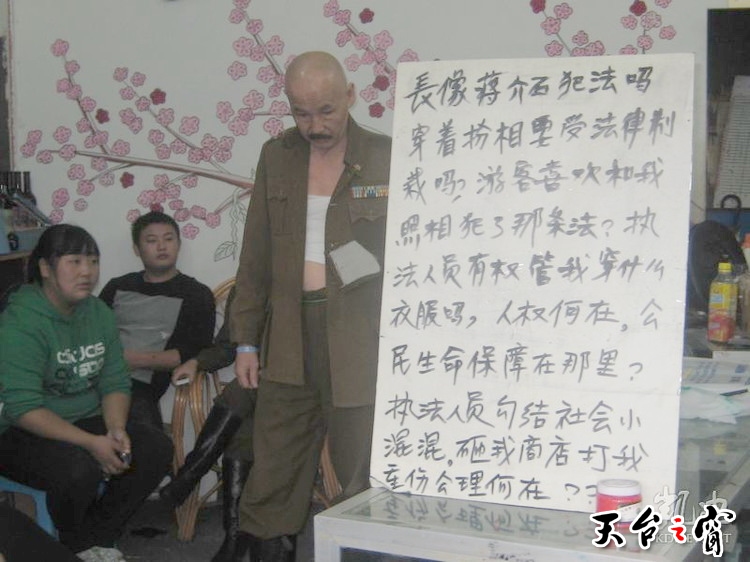 長像蒋介石犯法吗
穿着扮相要受法律制
裁吗?游客喜欢和我
照相犯了那条法?执
法人员有权管我穿什么
衣服吗,人权何在,公
民生命保障在那里?
执法人员勾结社会小
混混,砸我商店打我
重伤公理何在??
天台之窗